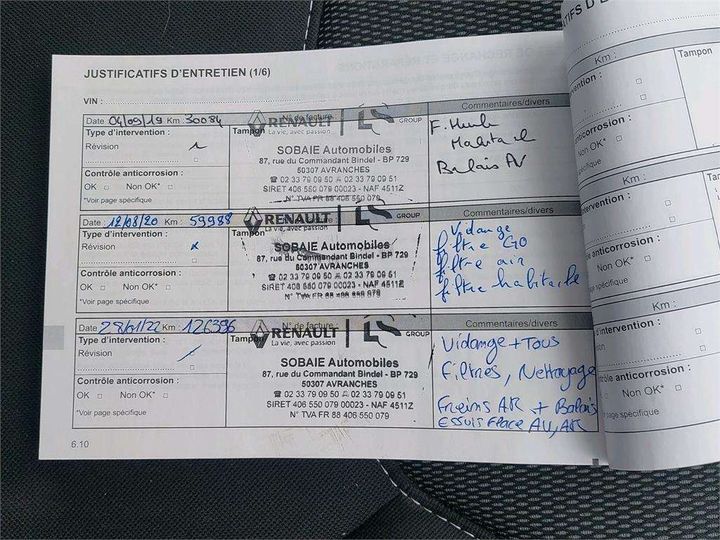 JUSTIFICATIFS D'ENTRETIEN (1/6)
VIN :
Date : 04/09/19 Km : 30084 N° de facture Commentaires/divers
Type d'intervention : Tampon
Révision
Contrôle anticorrosion :
OK □ Non OK* □
*Voir page spécifique
RENAULT
La vie, avec passion
GROUP
SOBAIE Automobiles
87, rue du Commandant Bindel - BP 729
50307 AVRANCHES
☎ 02 33 79 09 50 🖷 02 33 79 09 51
SIRET 406 550 079 00023 - NAF 4511Z
N° TVA FR 88 406 550 079
F. Huile
Habitacle
Balais AV
Date : 12/08/20 Km : 59988 Commentaires/divers
Type d'intervention : Tampon
Révision x
□
Contrôle anticorrosion :
OK □ Non OK* □
*Voir page spécifique
RENAULT
La vie, avec passion
GROUP
SOBAIE Automobiles
87, rue du Commandant Bindel - BP 729
50307 AVRANCHES
☎ 02 33 79 09 50 🖷 02 33 79 09 51
SIRET 406 550 079 00023 - NAF 4511Z
N° TVA FR 88 406 550 079
Vidange
filtre GO
filtre air
filtre habitacle
Date : 28/01/22 Km : 126396 N° de facture Commentaires/divers
Type d'intervention : Tampon
Révision
□
Contrôle anticorrosion :
OK □ Non OK* □
*Voir page spécifique
RENAULT
La vie, avec passion
GROUP
SOBAIE Automobiles
87, rue du Commandant Bindel - BP 729
50307 AVRANCHES
☎ 02 33 79 09 50 🖷 02 33 79 09 51
SIRET 406 550 079 00023 - NAF 4511Z
N° TVA FR 88 406 550 079
Vidange + Tous
Filtres, Nettoyage
Freins AR + Balais
ESSUIS GLACE AV, AR
6.10
TIFS D'E
Km :
Tampon
tervention :
nticorrosion :
Non OK* □
e spécifique
Km :
ntervention :
anticorrosion :
Non OK* □
spécifique
Km :
d'intervention :
Tampon
ôle anticorrosion :
Non OK* □
page spécifique